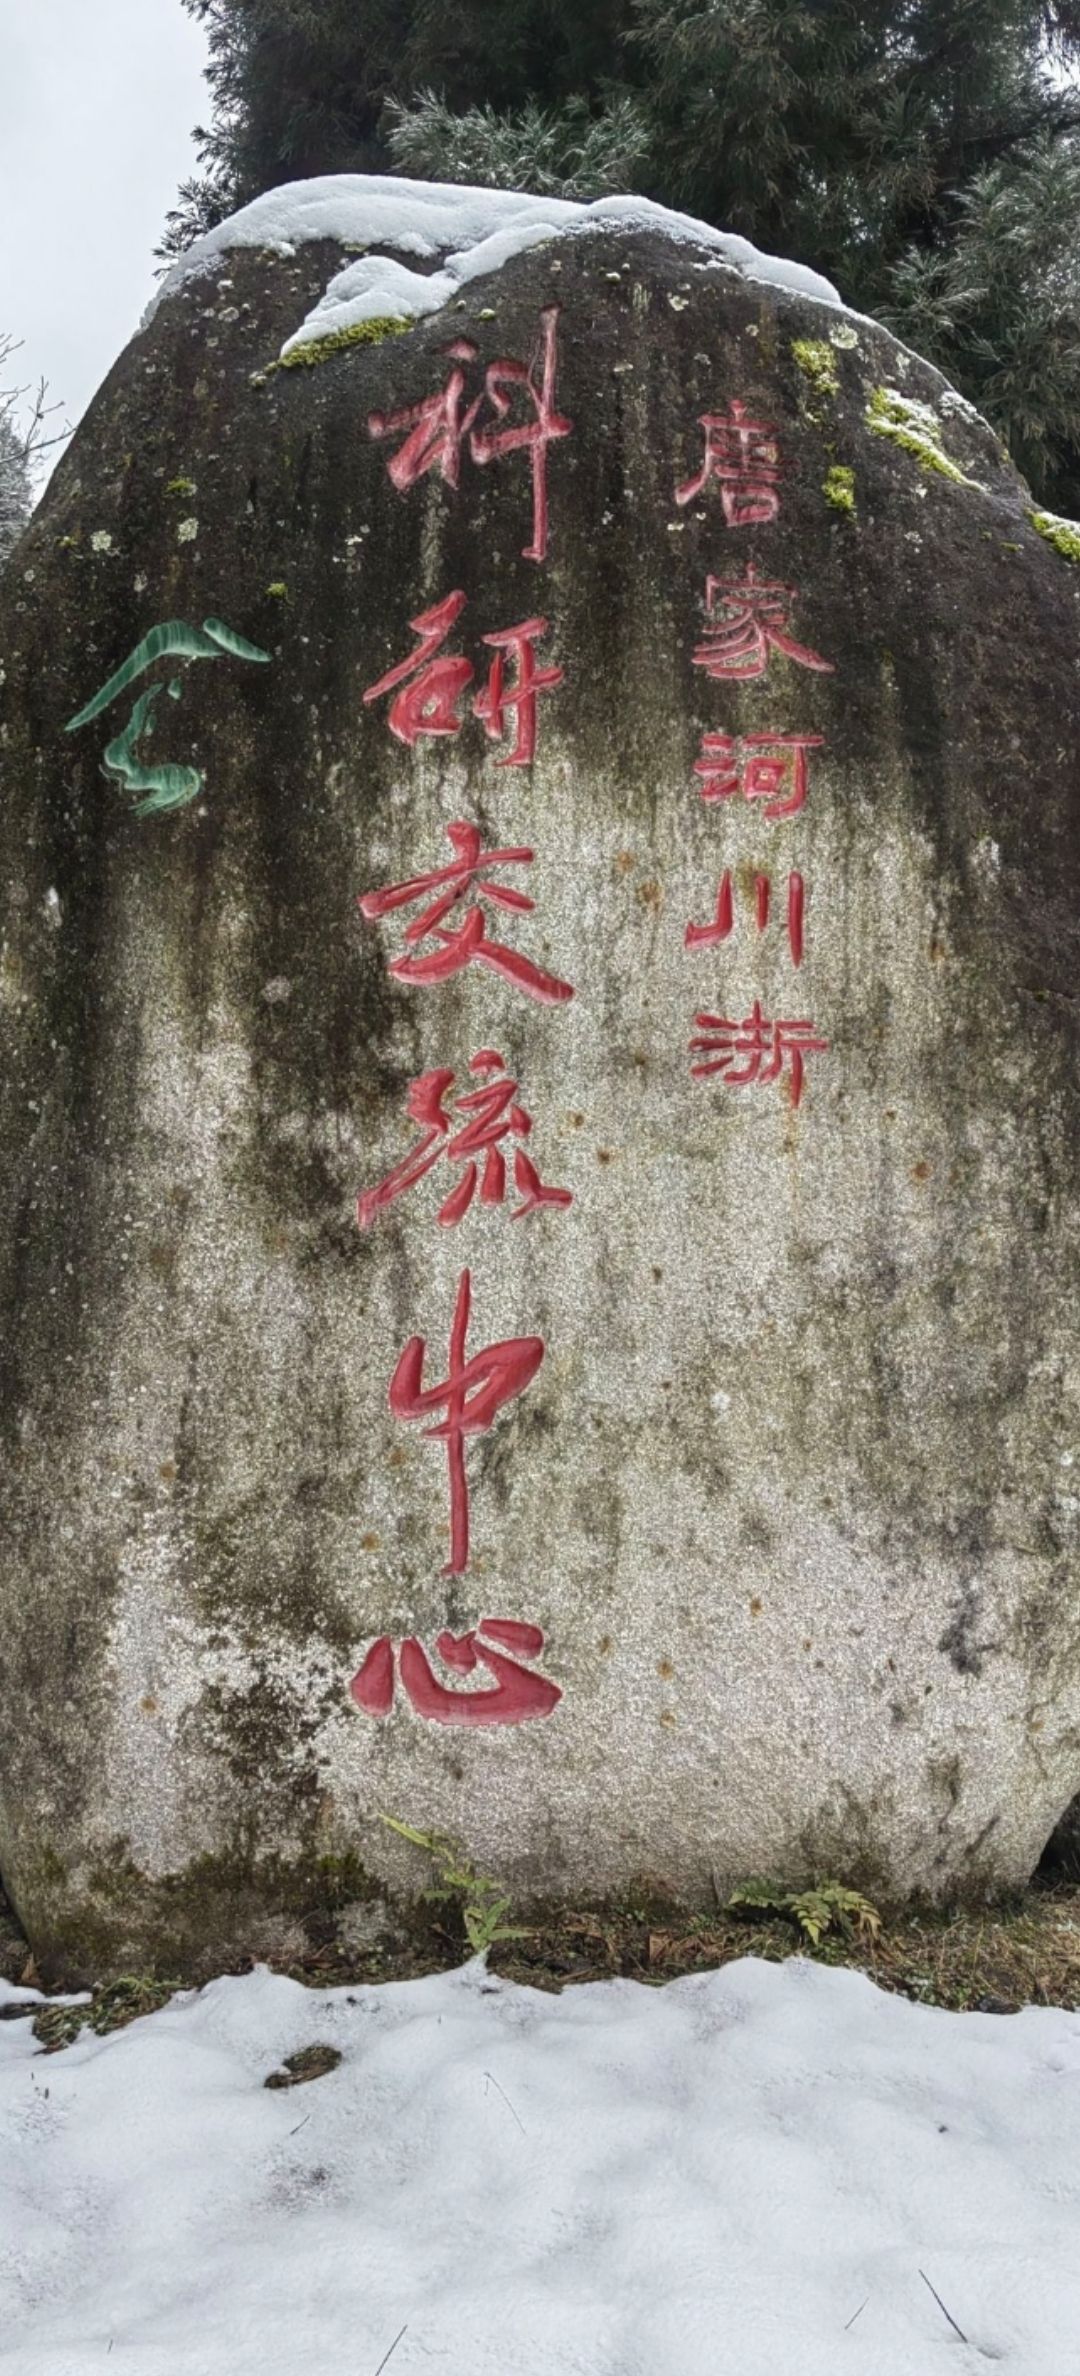 唐家河川浙
科研交流中心